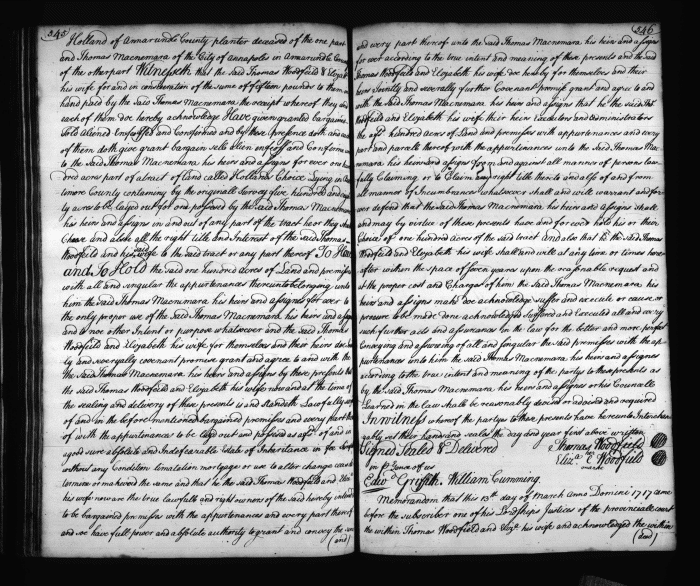 345
Holland of Annarundel County planter deceased of the one part
and Thomas Macnemara of the City of Annapolis in Annarundel County
of the other part Witnesseth that the said Thomas Woodfield & Elizabeth
his wife for and in consideration of the sume of fifteen pounds to them in
hand paid by the said Thomas Macnemara the receipt whereof they and
each of them doe hereby acknowledge Have given granted bargained
sold Aliened Enfeoffed and Confirmed and by these presents doth and each
of them doth give grant bargain sell alien enfeoff and Confirm
to the said Thomas Macnemara his heirs and assigns for ever one hun
dred acres part of a tract of land called Hollands Choice Lying in Bal
timore County containing by the originall survey five hundred and
ty acres to be layed out for and possessed by the said Thomas Macnemara
his heirs and assigns in and out of any part of the tract he or they shall
Chuse and alsoe all the right title and Interest of the said Thomas
Woodfield and his wife to the said tract or any part thereof To Have
and To Hold the said one hundred acres of Land and premisses
with all and singular the appurtenances thereunto belonging unto
him the said Thomas Macnemara his heirs and assignes for ever to
the only proper use of the said Thomas Macnemara his heirs and assigns
and to noe other Intent or purpose whatsoever and the said Thomas
Woodfield and Elizabeth his wife for themselves and their heirs doe
ly and severally covenant promise grant and agree to and with the
the said Thomas Macnemara his heirs and assigns by these presents that
the said Thomas Woodfield and Elizabeth his wife now and at the time of
the sealing and delivery of these presents is and standeth Lawfully seized
of and in the before mentioned bargained premisses and every part there
of with the appurtenances to be layd out and possessed as afd. of and in
a good sure absolute and Indefeazable Estate of Inheritance in fee simple
without any Condition limitation mortgage or use to alter change
termine or make void the same and that to the said Thomas Woodfield and Eliza
his wife now are the true lawfull and right owners of the said hereby intended
to be bargained premisses with the appurtenances and every part thereof
and we have full power and absolute authority to grant and convey the same
(and)
346
and every part thereof unto the said Thomas Macnemara his heirs and assigns
for ever according to the true intent and meaning of these presents and the said
Thomas Woodfield and Elizabeth his wife doe hereby for themselves and their
heirs Jointly and severally further Covenant promise grant and agree to and
with the said Thomas Macnemara his heirs and assigns that he the said Thos
Woodfield and Elizabeth his wife their heirs Executors and administrators
the afd. hundred acres of Land and premisses with appurtenances and every
part and parcell thereof with the appurtenances unto the said Thomas Macne
mara his heirs and assigns from and against all manner of persons law
fully Claiming or to Claim any right title thereto and alsoe of and from
all manner of Incumbrances whatsoever shall and will warrant and for
ever defend that the said Thomas Macnemara his heirs and assigns shall
and may by virtue of these presents have and for ever hold his or their
Choice of one hundred acres of the said tract and also that the said Thomas
Woodfield and Elizabeth his wife shall and will at any time or times here
after within the space of seven years upon the reasonable request and
at the proper cost and Charges of him the said Thomas Macnemara his
heirs and assigns make doe acknowledge suffer and execute or cause or
procure to be made done acknowledged suffered and Executed all and every
such further acts and assurances in the law for the better and more perfect
conveying and assuring of all and singular the said premisses with the ap
purtenances unto him the said Thomas Macnemara his heirs and assignes
according to the true intent and meaning of the partys to these presents as
by the said Thomas Macnemara his heirs and assignes or his Councill
Learned in the law shall be reasonably devised or advised and required
In witness whereof the partys to these presents have hereunto Interchan
geably set their hands and seales the day and year first above written
Signed Sealed & Delivered
Thomas Woodfield
in presence of us
Eliza E Woodfield
mark
Edwd Griffith. William Cumming.
Memorandum that this 13th day of March Anno Domini 1717 came
before the subscriber one of his Lordships Justices of the provinciall court
the within Thomas Woodfield and Eliza his wife and acknowledged the within
(deed)